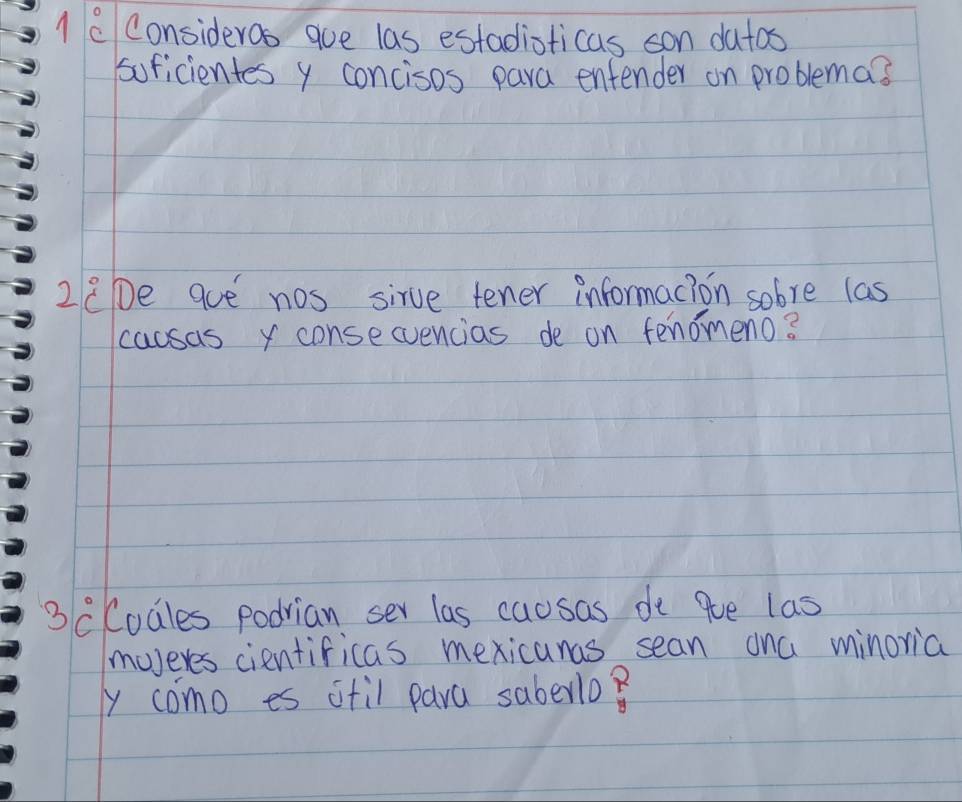 1 ¿Consideras que las estadisticas son datos
suficientes y concisos para entender un problema?
2 ¿De qué nos sirve tener información sobre las
causas y consecuencias de un fenómeno?
3 ¿Cuáles podrian ser las causas de que las
mujeres cientificas mexicanas sean una minoria
y cómo es útil para saberlo?